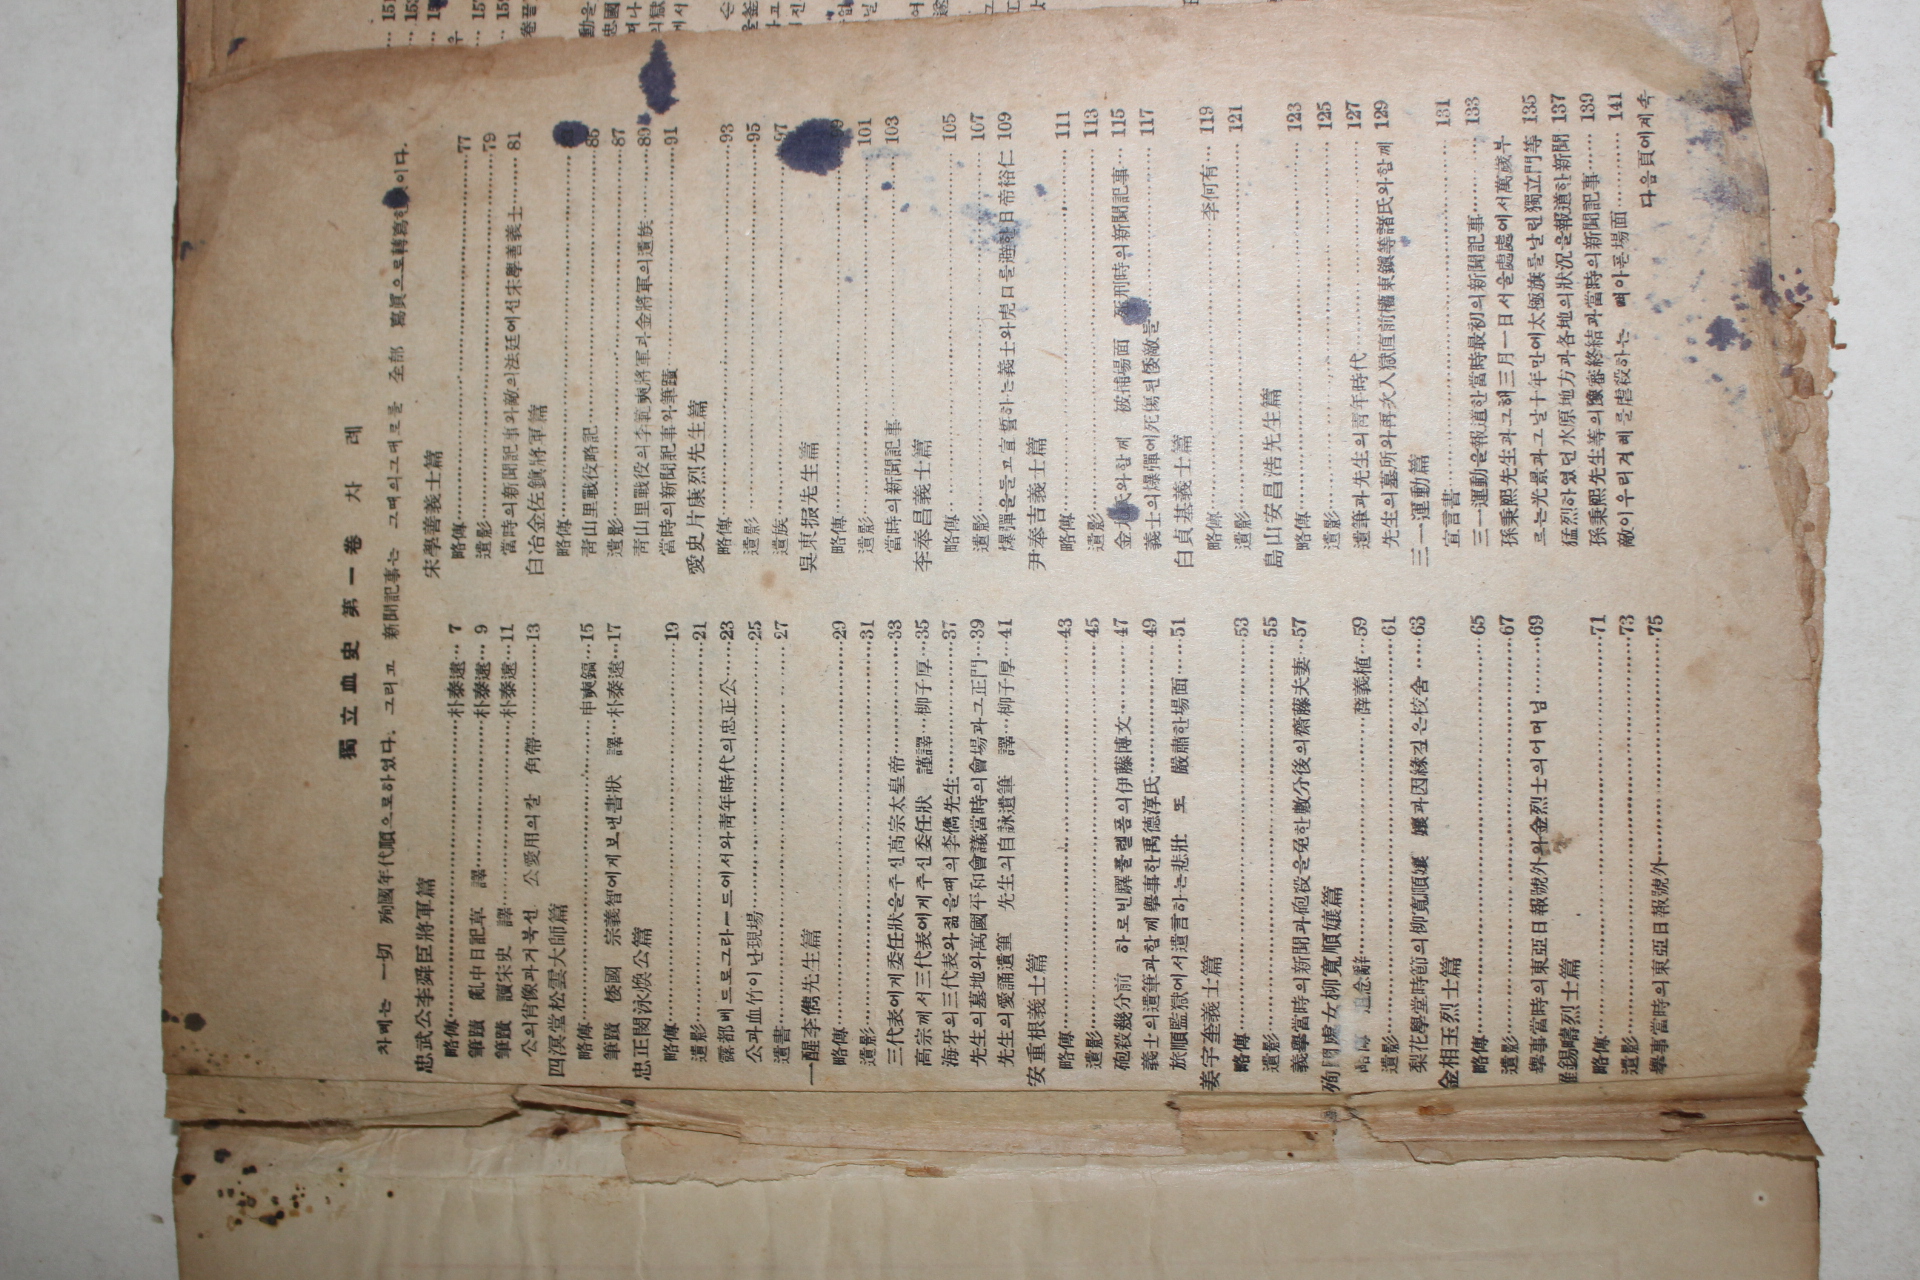 獨立血史 第一卷 차례
차례는 一切 殉國年代順으로하였다. 그리고 新聞記事는 그때의그대로를 全部 寫眞으로轉寫한 이다.
忠武公李舜臣將軍篇
略傳……朴泰遠… 7
筆蹟 亂中日記草 譯……朴泰遠… 9
筆蹟 讀宋史 譯……朴泰遠…11
公의肖像과거북선 公愛用의칼 角帶……13
四溟堂松雲大師篇
略傳……申奭鎬…15
筆蹟 倭國 宗義智에게보낸書狀 譯…朴泰遠…17
忠正閔泳煥公篇
略傳……19
遺影……21
露都베드로그라ー드에서와靑年時代의忠正公……23
公과血竹이난現場……25
遺書……27
一醒李儁先生篇
略傳……29
遺影……31
三代表에게委任狀을주신高宗太皇帝……33
高宗께서三代表에게주신委任狀 謹譯…柳子厚…35
海牙의三代表와젊을때의李儁先生……37
先生의墓地와萬國平和會議當時의會場과그正門…39
先生의愛誦遺筆 先生의自詠遺筆 譯…柳子厚…41
安重根義士篇
略傳……43
遺影……45
砲殺幾分前 하르빈驛풀랱폼의伊藤博文……47
義士의遺筆과함께擧事한禹德淳氏……49
旅順監獄에서遺言하는悲壯 또 嚴肅한場面……51
姜宇奎義士篇
略傳……53
遺影……55
義擧當時의新聞과砲殺을免한數分後의齋藤夫妻…57
殉 處女柳寬順孃篇
念辭……薛義植…59
遺影……61
梨花學堂時節의柳寬順孃 孃과因緣깊은校舍……63
金相玉烈士篇
略傳……65
遺影……67
擧事當時의東亞日報號外와金烈士의어머님……69
羅錫疇烈士篇
略傳……71
遺影……73
擧事當時의東亞日報號外……75
宋學善義士篇
略傳……77
遺影……79
當時의新聞記事와敵의法廷에선宋學善義士……81
白冶金佐鎭將軍篇
略傳……
靑山里戰役略記……85
遺影……87
靑山里戰役의李範奭將軍과金將軍의遺族……89
當時의新聞記事와筆蹟……91
愛史片康烈先生篇
略傳……93
遺影……95
遺族……97
吳東振先生篇
略傳……99
遺影……101
當時의新聞記事……103
李奉昌義士篇
略傳……105
遺影……107
爆彈을들고宣誓하는義士와虎口를避한日帝裕仁 109
尹奉吉義士篇
略傳……111
遺影……113
金 氏와함께 被捕場面 刑時의新聞記事…115
義士의爆彈에死傷된倭敵들……117
白貞基義士篇
略傳……李何有…119
遺影……121
島山安昌浩先生篇
略傳……123
遺影……125
遺筆과先生의靑年時代……127
先生의墓所와再次入獄直前權東鎭等諸氏와함께 129
三一運動篇
宣言書……131
三一運動을報道한當時最初의新聞記事……133
孫秉熙先生과그해三月一日서울處處에서萬歲부
르는光景과그날十年만에太極旗를날린獨立門等 135
猛烈하였던水原地方과各地의狀況을報道한新聞 137
孫秉熙先生等의豫審終結과當時의新聞記事……139
敵이우리겨레를虐殺하는 뼈아픈場面……141
다음頁에계속